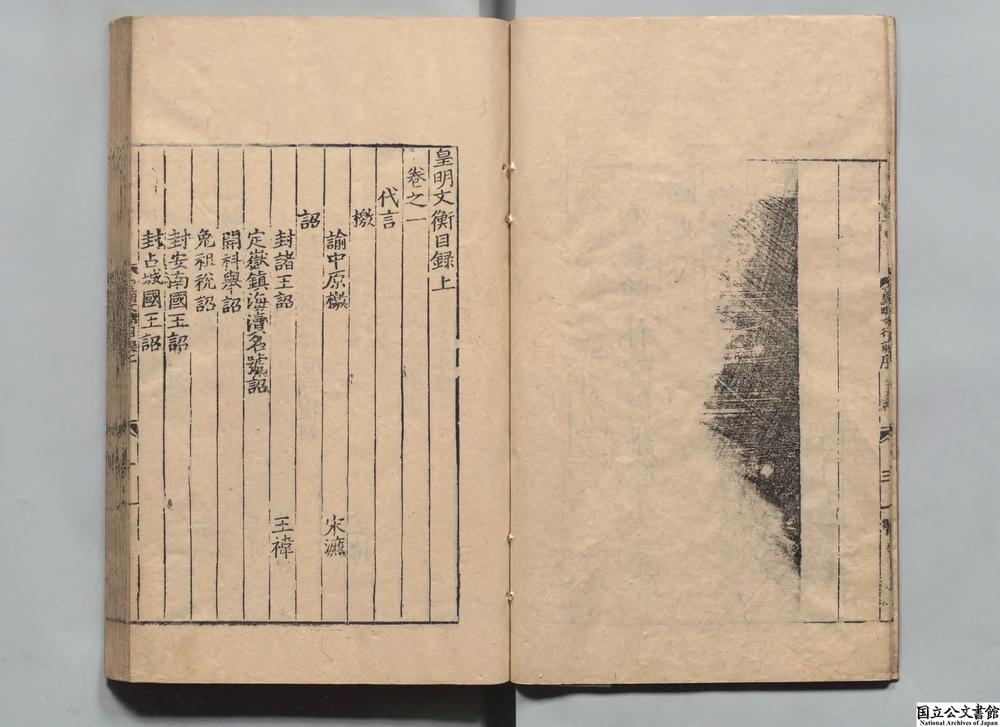 皇明文衡目録上
卷之一
代言
檄
諭中原檄 宋濂
詔
封諸王詔 王禕
定嶽鎮海瀆名號詔
開科舉詔
免租稅詔
封安南國王詔
封占城國王詔
国立公文書館
National Archives of Japan